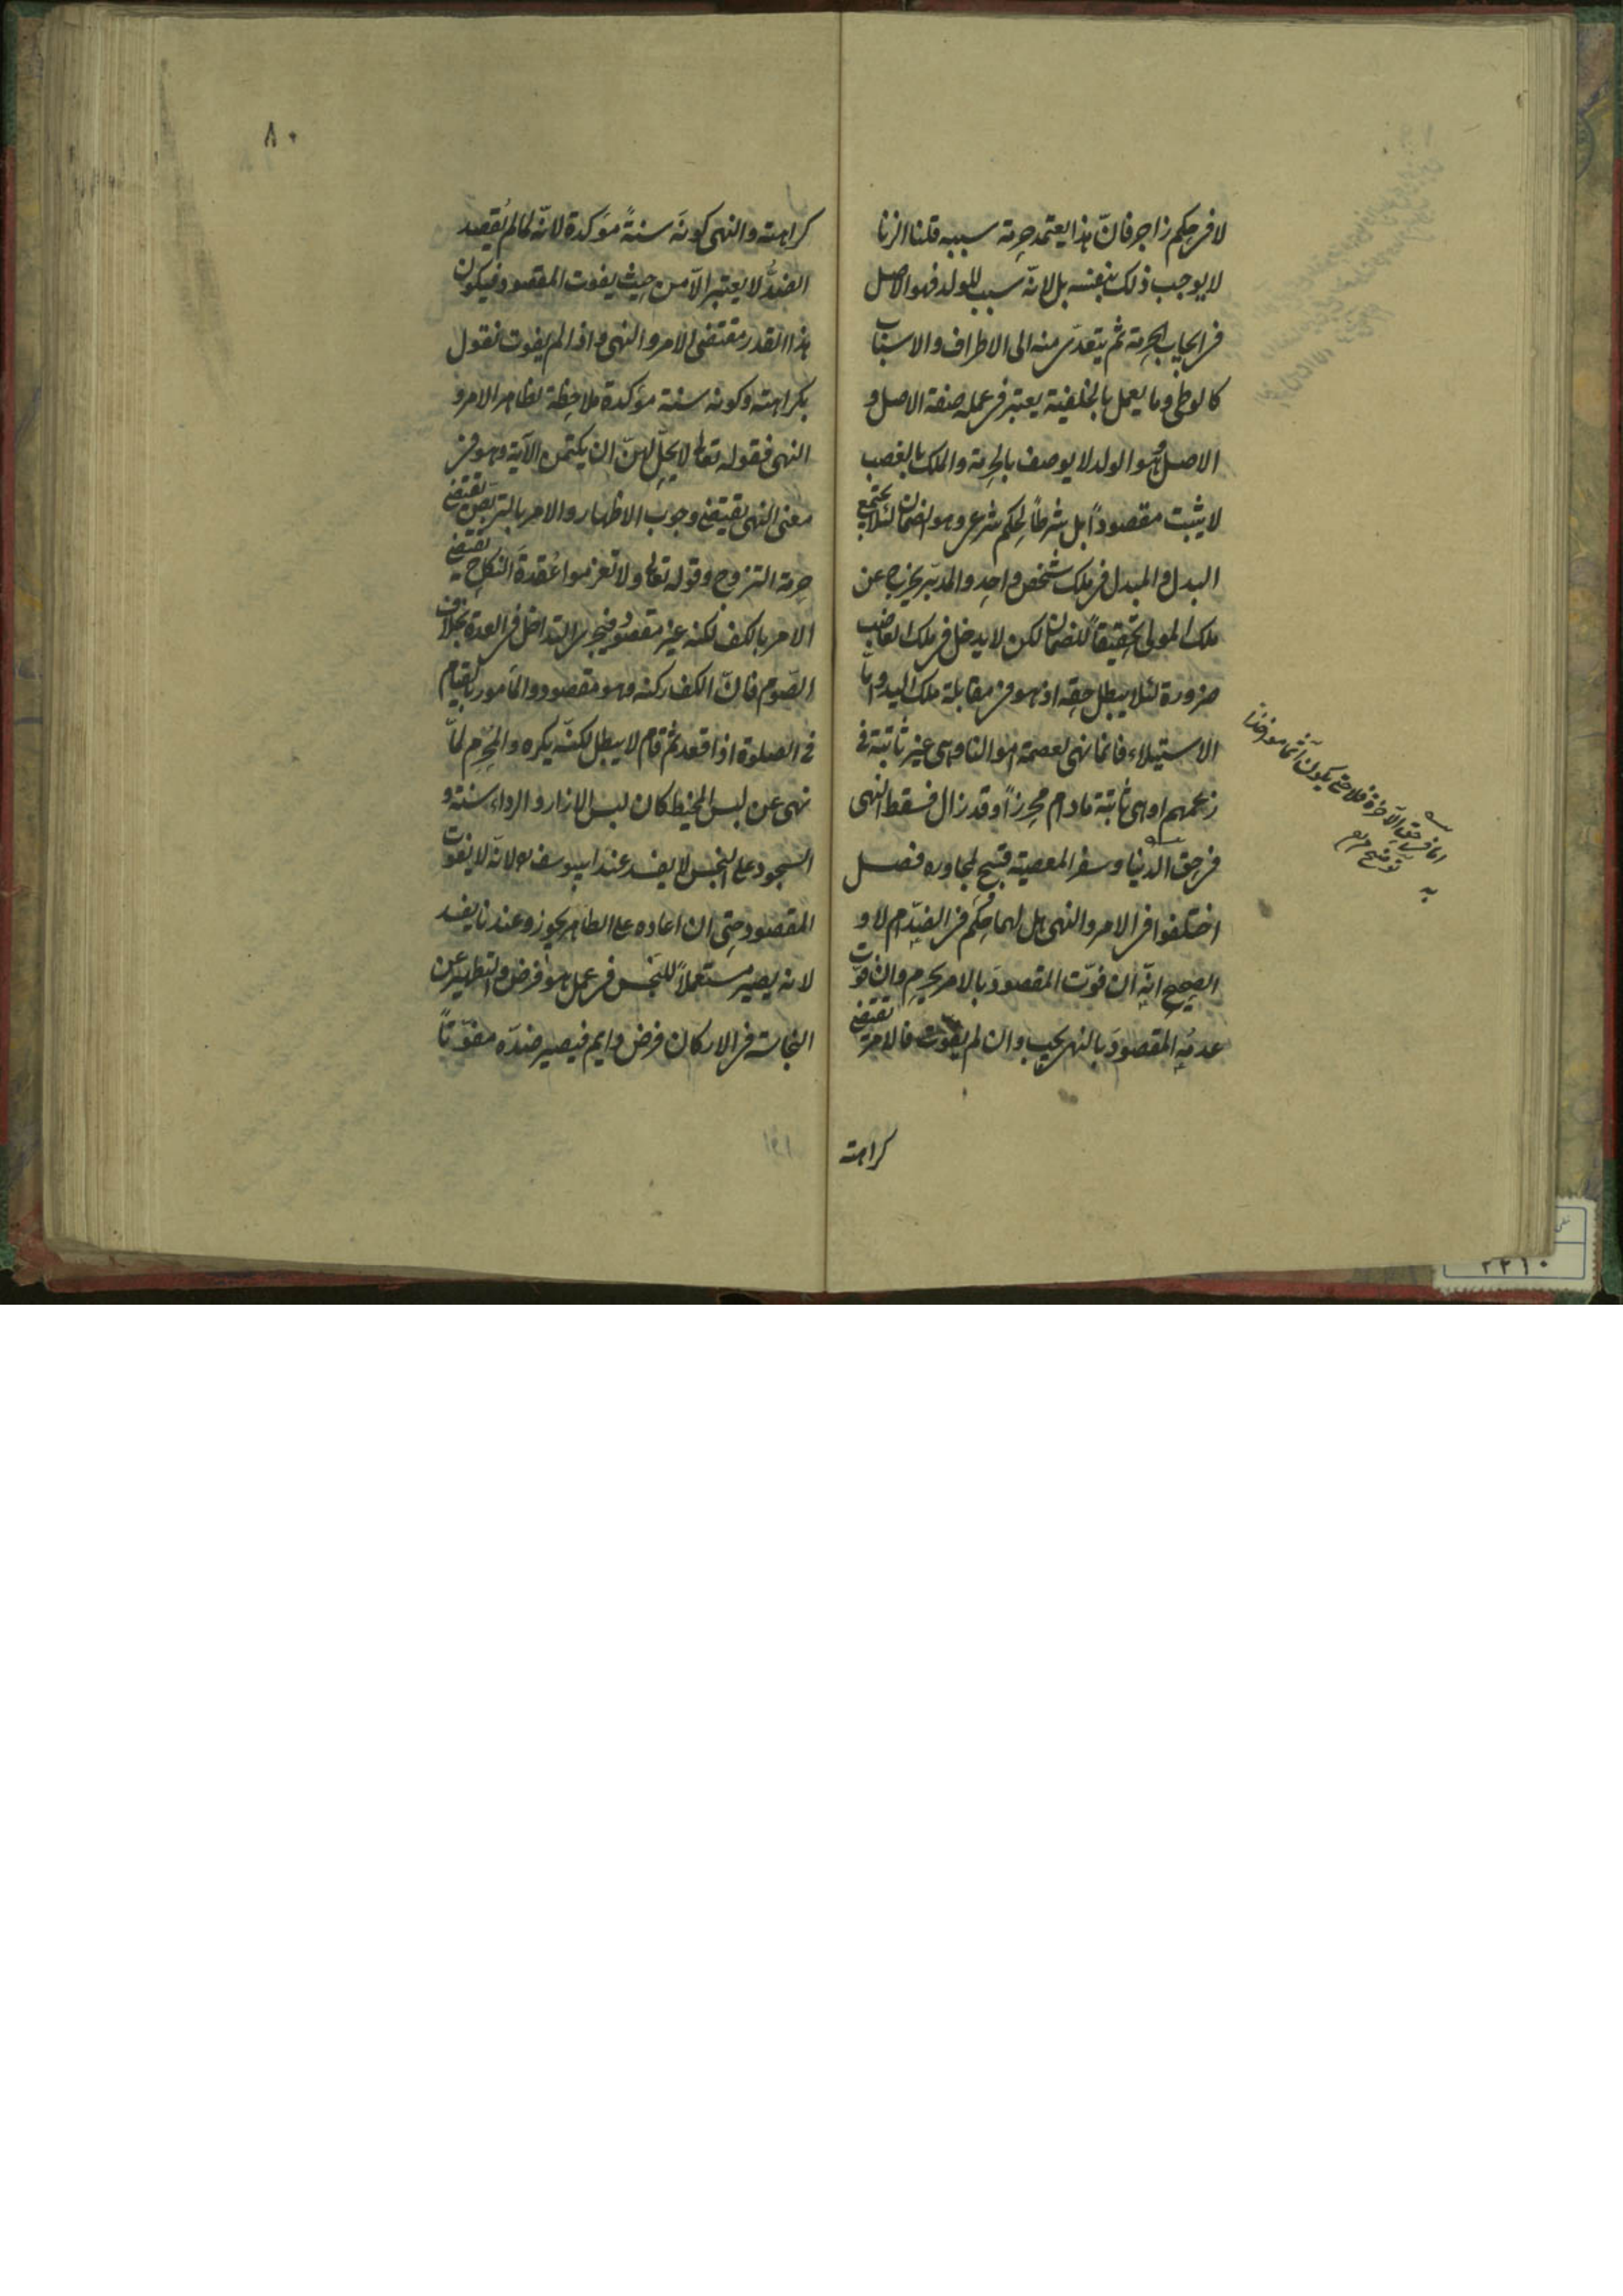 لا فى حكم زاجر فانّ هذا يعتمد حرمة سببه قلنا الزنا
لا يوجب ذلك بنفسه بل لانّه سبب للولد فهو الاصل
فى ايجاب الحرمة ثم يتعدّى منه الى الاطراف والاسباب
كالوطى وما يعمل بالخلفية يعتبر فى عمله صفة الاصل و
الاصل وهو الولد لا يوصف بالحرمة والملك بالغصب
لا يثبت مقصوداً بل شرطاً لحكم شرعى وهو الضمان لئلا يجتمع
البدل والمبدل فى ملك شخص واحد والمدبّر يخرج عن
ملك المولى تحقيقاً للضمان لكن لا يدخل فى ملك الغاصب
ضرورة لئلا يبطل حقه اذ هو فى مقابلة ملك اليد واما
الاستيلاء فانما نهى لعصمة اموالنا وهى غير ثابتة فى
زعمهم او هى ثابتة مادام محرزاً وقد زال فسقط النهى
فى حق الدنيا وسفر المعصية قبيح لمجاوره فصل
اختلفوا فى الامر والنهى هل لهما حكم فى الضدّ ام لا و
الصحيح انّه ان فوّت المقصود بالامر يحرم وان فوّت
عدمه المقصود بالنهى يجب وان لم يفوّت فالامر يقتضى
كراهته
اما فى حق الآخرة فلا حتى يكون آثما مواخذا
به
توضيح
٨٠
كراهته والنهى كونَه سنةً مؤكدة لانّه لما لم يُقصد
الضدُّ لا يعتبر الّا من حيث يفوت المقصود فيكون
هذا القدر مقتضى الامر والنهى واذا لم يفوت نقول
بكراهته وكونه سنة مؤكدة ملاحظة لظاهر الامر و
النهى فقوله تعالى لا يحلّ لهنّ ان يكتمن الآية وهو فى
معنى النهى يقتضى وجوب الاظهار والامر بالتربّص يقتضى
حرمة التزوج وقوله تعالى ولا تعزموا عُقدةَ النكاح يقتضى
الامر بالكف لكنه غير مقصود فيجرى التداخل فى العدة بخلاف
الصّوم فانّ الكف ركنه وهو مقصود والمأمور بالقيام
فى الصلوة اذا قعد ثم قام لا يبطل لكنّه يكره والمحرِم لمّا
نهى عن لبس المخيط كان لبس الازار والرداء سنة و
السجود على النجس لا يفسد عند ابى يوسف رح لانّه لا يفوت
المقصود حتى ان اعاده على الطاهر يجوز وعندنا يفسد
لانه يصير مستعملاً للنجس فى عمل هو فرض والتطهير عن
النجاسة فى الاركان فرض دايم فيصير ضدّه مفوّتاً
٢٢١٠